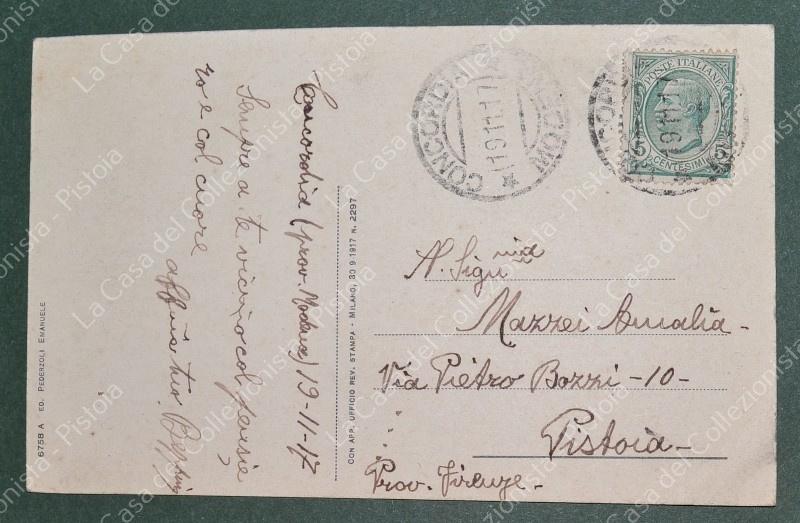 Concordia (prov. Modena) 19-11-17
Sempre a te vicino col pensie
ro e col cuore
6758 A ED. PEDERZOLI EMANUELE
CON APP. UFFICIO REV. STAMPA - MILANO, 30 9-1917 N. 2297
CONCORDIA
19.11.17
POSTE ITALIANE
CENTESIMI
5
N. Sigu
Mazzei Amalia -
Via Pietro Bozzi - 10 -
Pistoia -
Prov. Firenze -
La Casa del Collezionista - Pistoia